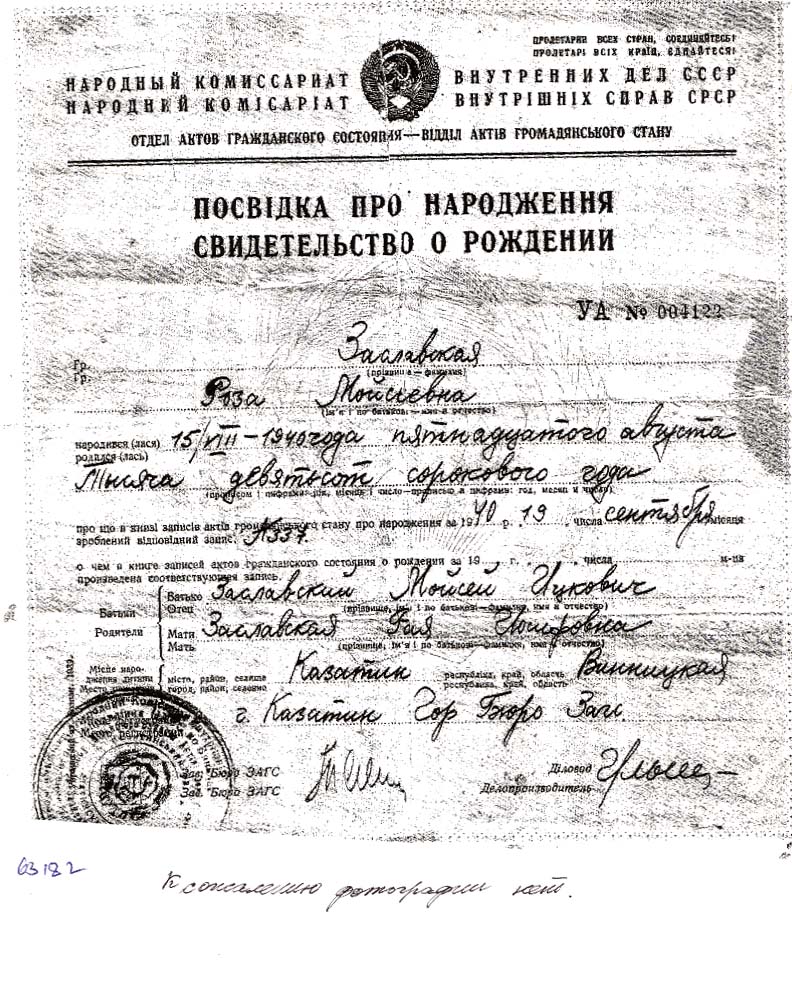 ПРОЛЕТАРИИ ВСЕХ СТРАН, СОЕДИНЯЙТЕСЬ!
ПРОЛЕТАРІ ВСІХ КРАЇН, ЄДНАЙТЕСЯ!
НАРОДНЫЙ КОМИССАРИАТ ВНУТРЕННИХ ДЕЛ СССР
НАРОДНИЙ КОМІСАРІАТ ВНУТРІШНІХ СПРАВ СРСР
ОТДЕЛ АКТОВ ГРАЖДАНСКОГО СОСТОЯНИЯ—ВІДДІЛ АКТІВ ГРОМАДЯНСЬКОГО СТАНУ
ПОСВІДКА ПРО НАРОДЖЕННЯ
СВИДЕТЕЛЬСТВО О РОЖДЕНИИ
УА № 004122
Гр. Заславская
Гр.
(прізвище — фамилия)
Роза Мойсеевна
(ім'я і по батькові — имя и отчество)
народився (лася) 15/VIII - 1940 года пятнадцатого августа
родился (лась)
Тысяча девятьсот сорокового года
(прописом і цифрами: рік, місяць і число—прописью и цифрами: год, месяц и число)
про що в книзі записів актів громадянського стану про народження за 1940 р. 19 числа сентября місяця
зроблений відповідний запис. №337.
о чем в книге записей актов гражданского состояния о рождении за 19 г. числа м-ца
произведена соответствующая запись.
Батько Заславский Мойсей Ицкович
Отец (прізвище, ім'я і по батькові—фамилия, имя и отчество)
Батьки
Родители
Мати Заславская Рая Иосифовна
Мать (прізвище, ім'я і по батькові—фамилия, имя и отчество)
Місце народження дитини місто, район, селище Казатин республіка, край, область Винницкая
Место город, район, селение республика, край, область
г. Казатин Гор Бюро Загс
Место регистрации
Зав. Бюро ЗАГС Діловод
Зав. Бюро ЗАГС Делопроизводитель
63182
К сожалению фотографии нет.